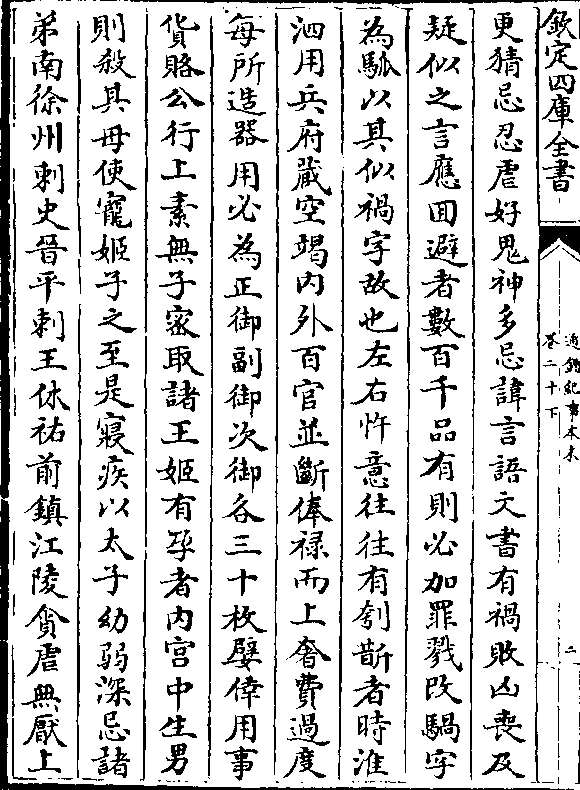 欽定四庫全書
通鑑紀事本末
卷二十下
二
更猜忌忍虐好鬼神多忌諱言語文書有禍敗凶喪及
疑似之言應回避者數百千品有則必加罪戮改騧字
為䯄以其似禍字故也左右忤意往往有刳斮者時淮
泗用兵府藏空竭内外百官並斷俸禄而上奢費過度
每所造器用必為正御副御次御各三十枚嬖倖用事
貨賂公行上素無子宻取諸王姬有孕者内宫中生男
則殺其母使寵姬子之至是寢疾以太子幼弱深忌諸
弟南徐州刺史晉平剌王休祐前鎮江陵貪虐無厭上